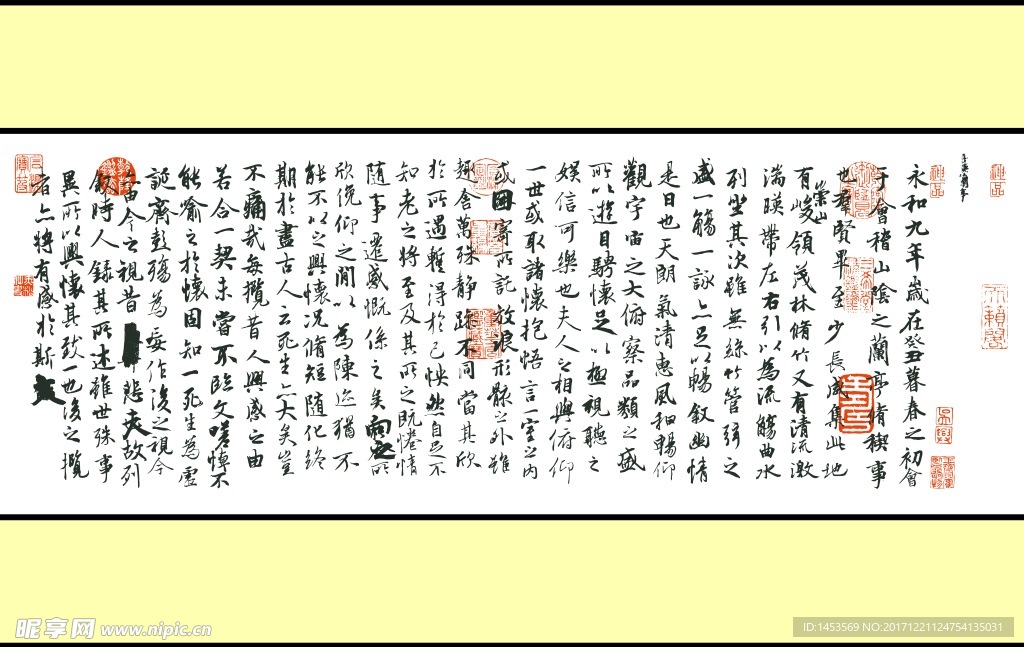 永和九年歲在癸丑暮春之初會
于會稽山陰之蘭亭脩稧事
也羣賢畢至少長咸集此地
有崇山峻領茂林脩竹又有清流激
湍暎帶左右引以為流觴曲水
列坐其次雖無絲竹管弦之
盛一觴一詠亦足以暢敘幽情
是日也天朗氣清惠風和暢仰
觀宇宙之大俯察品類之盛
所以遊目騁懷足以極視聽之
娛信可樂也夫人之相與俯仰
一世或取諸懷抱悟言一室之內
或因寄所託放浪形骸之外雖
趣舍萬殊靜躁不同當其欣
於所遇暫得於己怏然自足不
知老之將至及其所之既惓情
隨事遷感慨係之矣向之所
欣俛仰之閒以為陳迹猶不
能不以之興懷況脩短隨化終
期於盡古人云死生亦大矣豈
不痛哉每攬昔人興感之由
若合一契未嘗不臨文嗟悼不
能喻之於懷固知一死生為虛
誕齊彭殤為妄作後之視今
亦由今之視昔悲夫故列
敘時人錄其所述雖世殊事
異所以興懷其致一也後之攬
者亦將有感於斯文
昵享网 www.nipic.cn
ID:1453569 NO:20171221124754135031